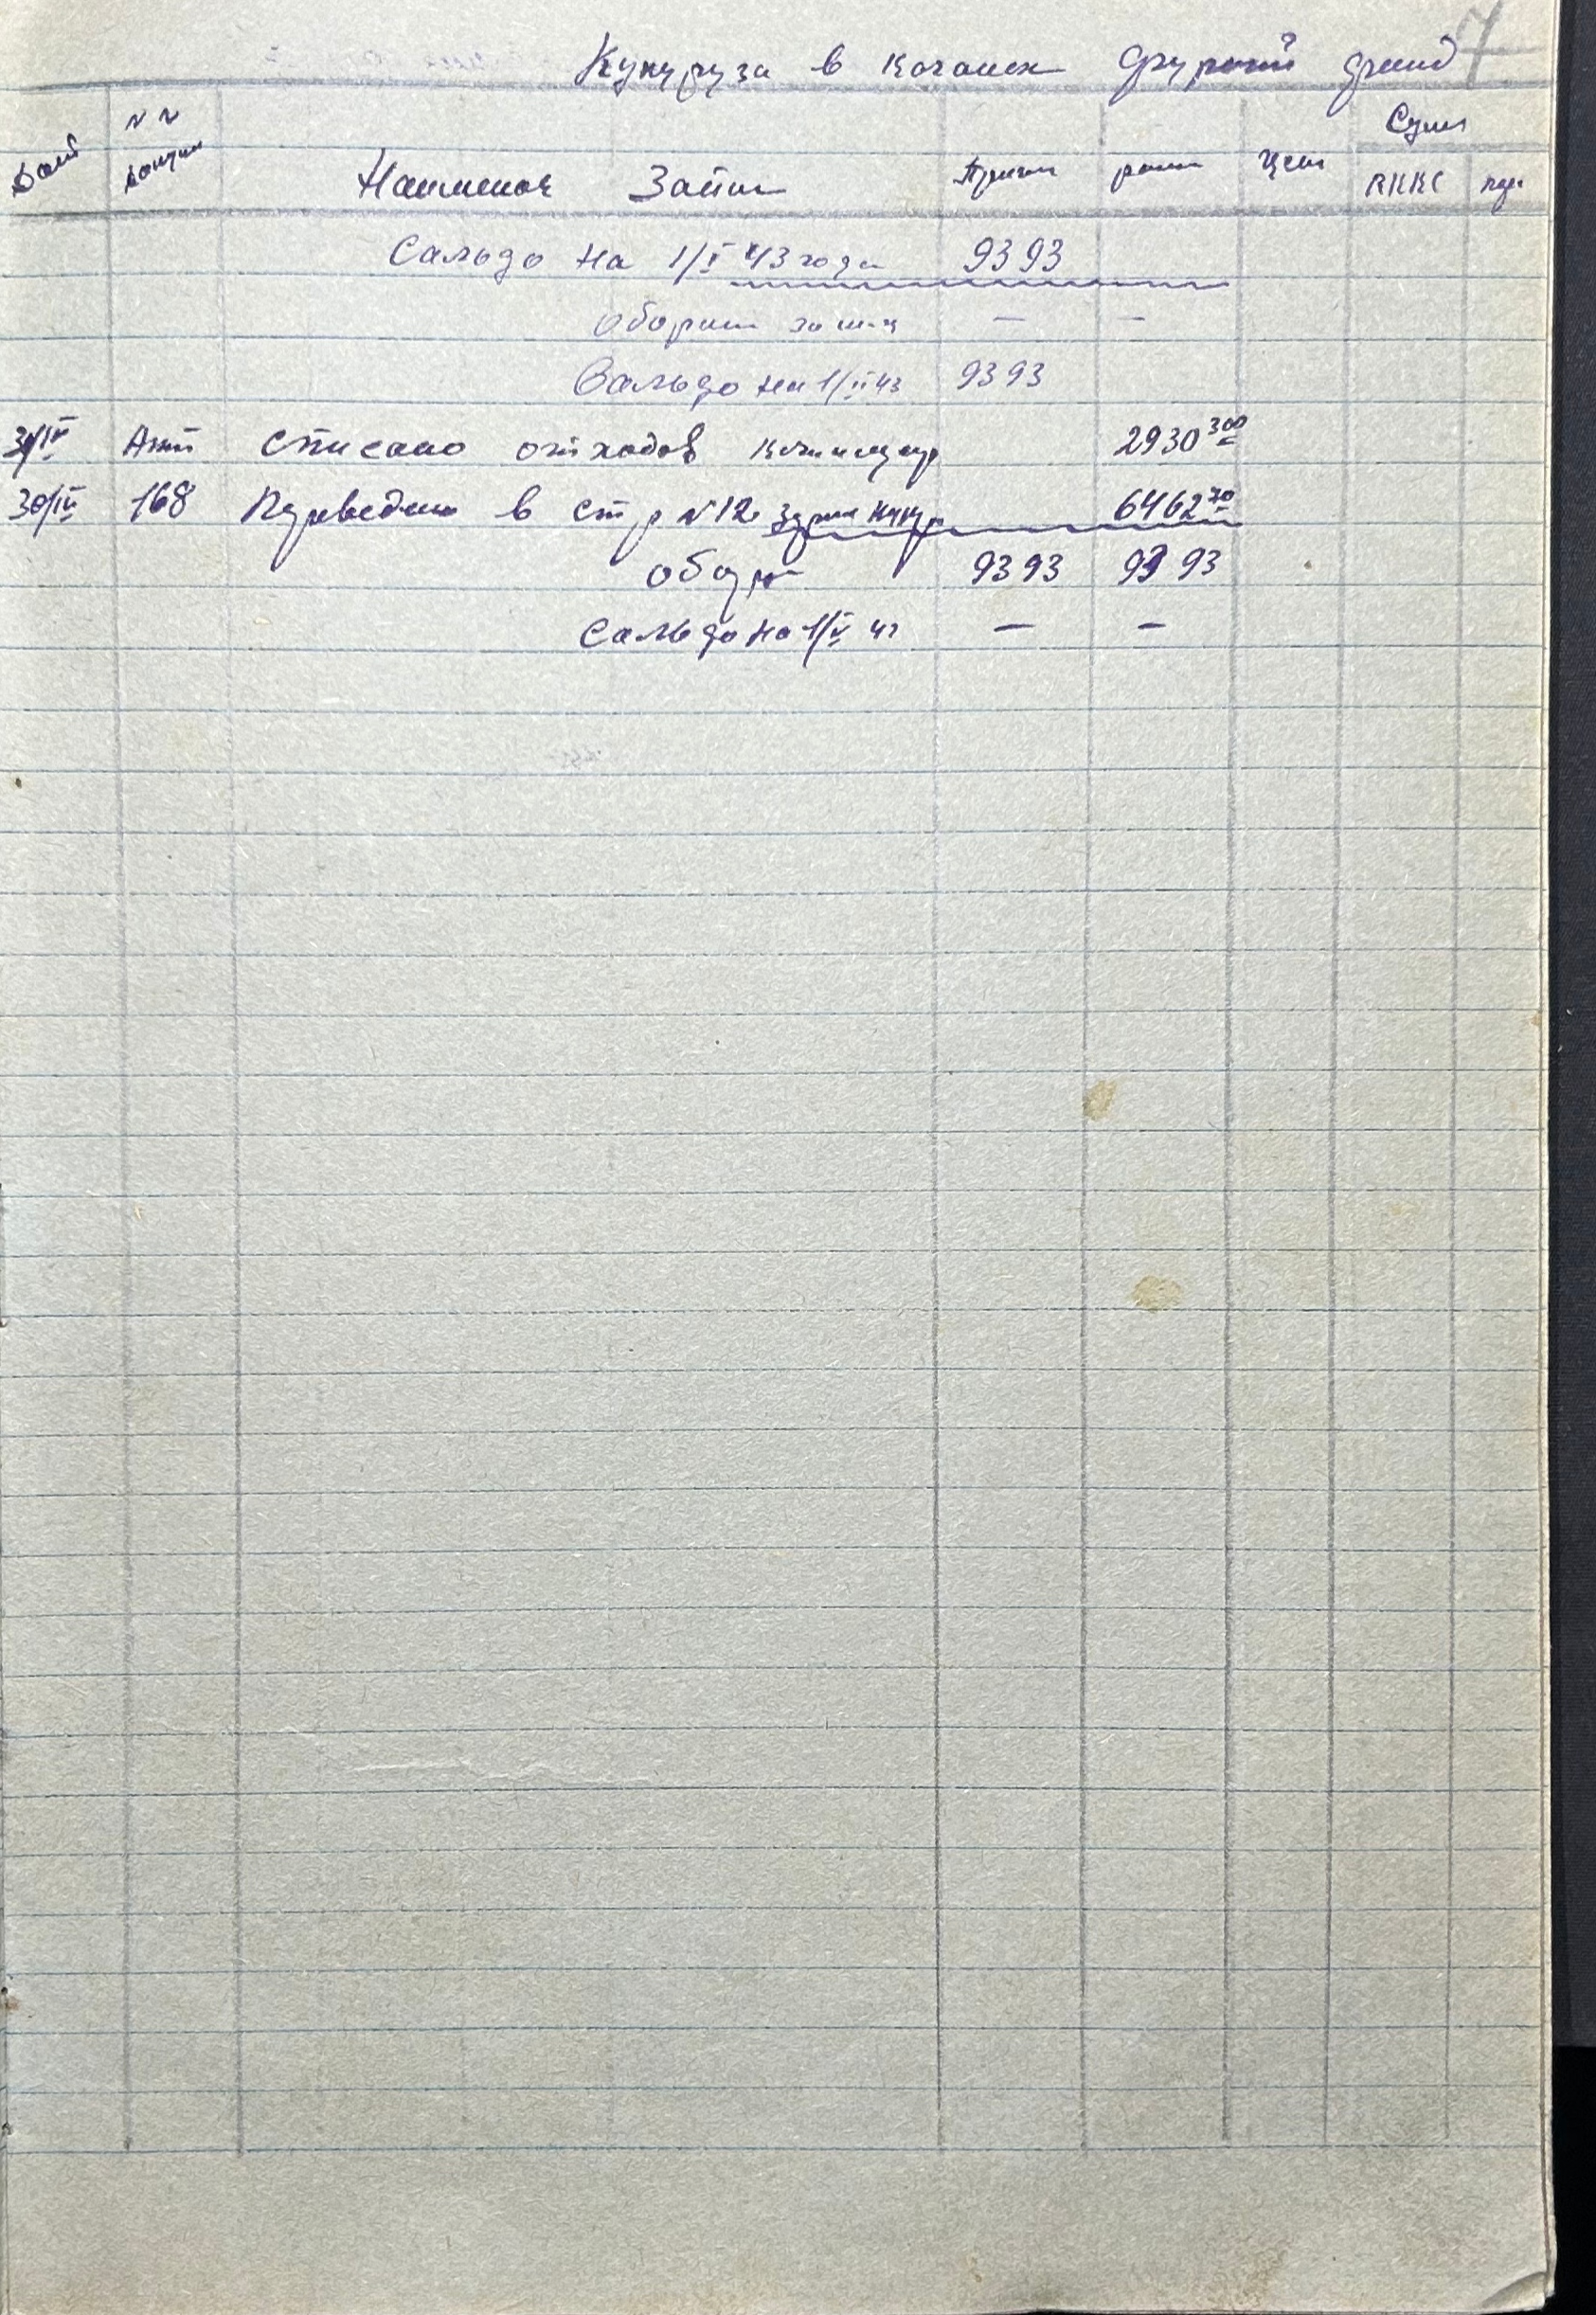 7
Кукуруза в качанах фуражный фонд
Дата № № Сумм
докум Наименов Запис Приход расх цена RKKS пф.
Сальдо на 1/I 43 года 9393
Оборот за м-ц — —
Сальдо на 1/II 43 9393
30/IV Акт Списано отходов 2930 300
30/IV 168 Переведено в стр № 12 зерно кукур 6462 70
оборот 9393 9393
Сальдо на 1/V 43 — —